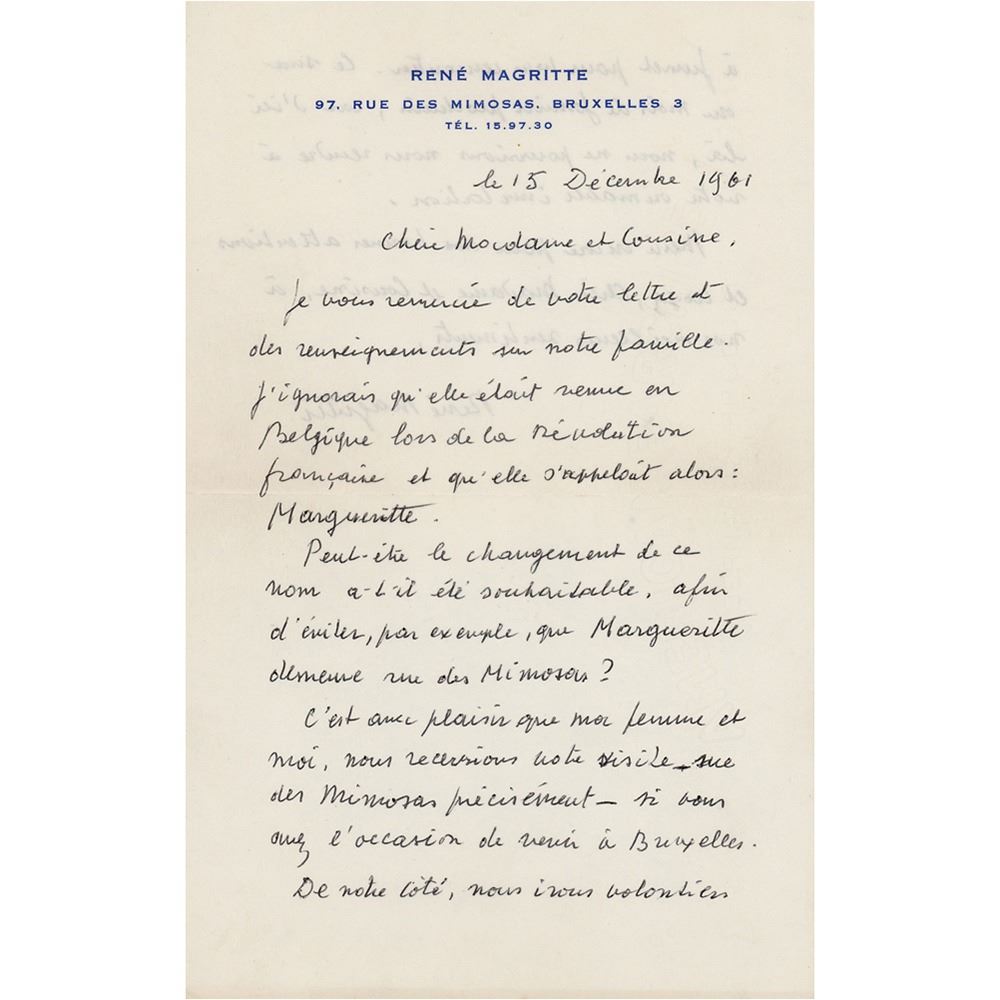 RENÉ MAGRITTE
97, RUE DES MIMOSAS. BRUXELLES 3
TÉL. 15.97.30
le 15 Décembre 1961
Chère Madame et Cousine,
Je vous remercie de votre lettre et
des renseignements sur notre famille.
J'ignorais qu'elle était venue en
Belgique lors de la Révolution
française et qu'elle s'appelait alors :
Margueritte.
Peut-être le changement de ce
nom a-t-il été souhaitable, afin
d'éviter, par exemple, que Margueritte
demeure rue des Mimosas ?
C'est avec plaisir que ma femme et
moi, nous recevrions votre visite – rue
des Mimosas précisément – si vous
avez l'occasion de venir à Bruxelles.
De notre côté, nous irons volontiers